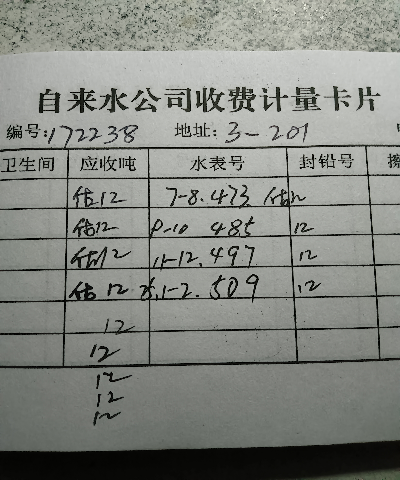 自来水公司收费计量卡片
编号:172238 地址:3-201
卫生间 应收吨 水表号 封铅号
估12 7-8.473 估12
估12 9-10 485 12
估12 11-12.497 12
估12 1-2.509 12
12
12
12
12
12